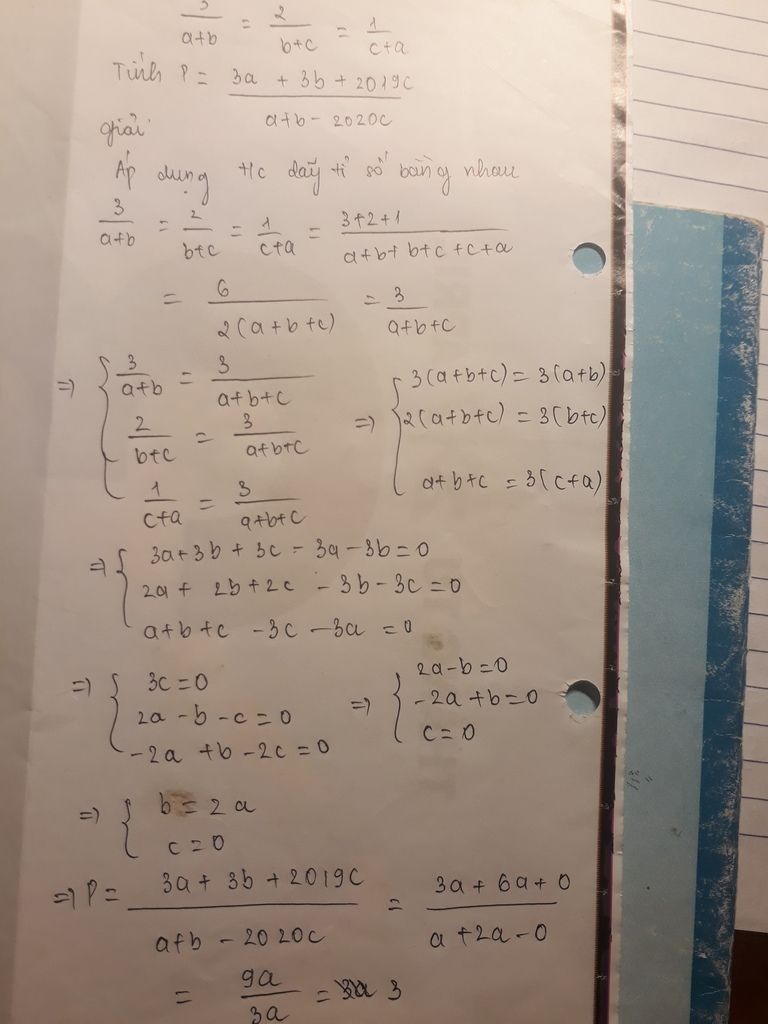 3/(a+b) = 2/(b+c) = 1/(c+a)
Tính P = (3a + 3b + 2019c)/(a+b - 2020c)
giải
Áp dụng t/c dãy tỉ số bằng nhau
3/(a+b) = 2/(b+c) = 1/(c+a) = (3+2+1)/(a+b+b+c+c+a)
= 6/(2(a+b+c)) = 3/(a+b+c)
=> { 3/(a+b) = 3/(a+b+c) => { 3(a+b+c) = 3(a+b)
2/(b+c) = 3/(a+b+c) 2(a+b+c) = 3(b+c)
1/(c+a) = 3/(a+b+c) a+b+c = 3(c+a)
=> { 3a+3b+3c-3a-3b=0
2a+2b+2c-3b-3c=0
a+b+c-3c-3a=0
=> { 3c=0 => { 2a-b=0
2a-b-c=0 -2a+b=0
-2a+b-2c=0 c=0
=> { b=2a
c=0
=> P = (3a+3b+2019c)/(a+b-2020c) = (3a+6a+0)/(a+2a-0)
= 9a/3a = 3